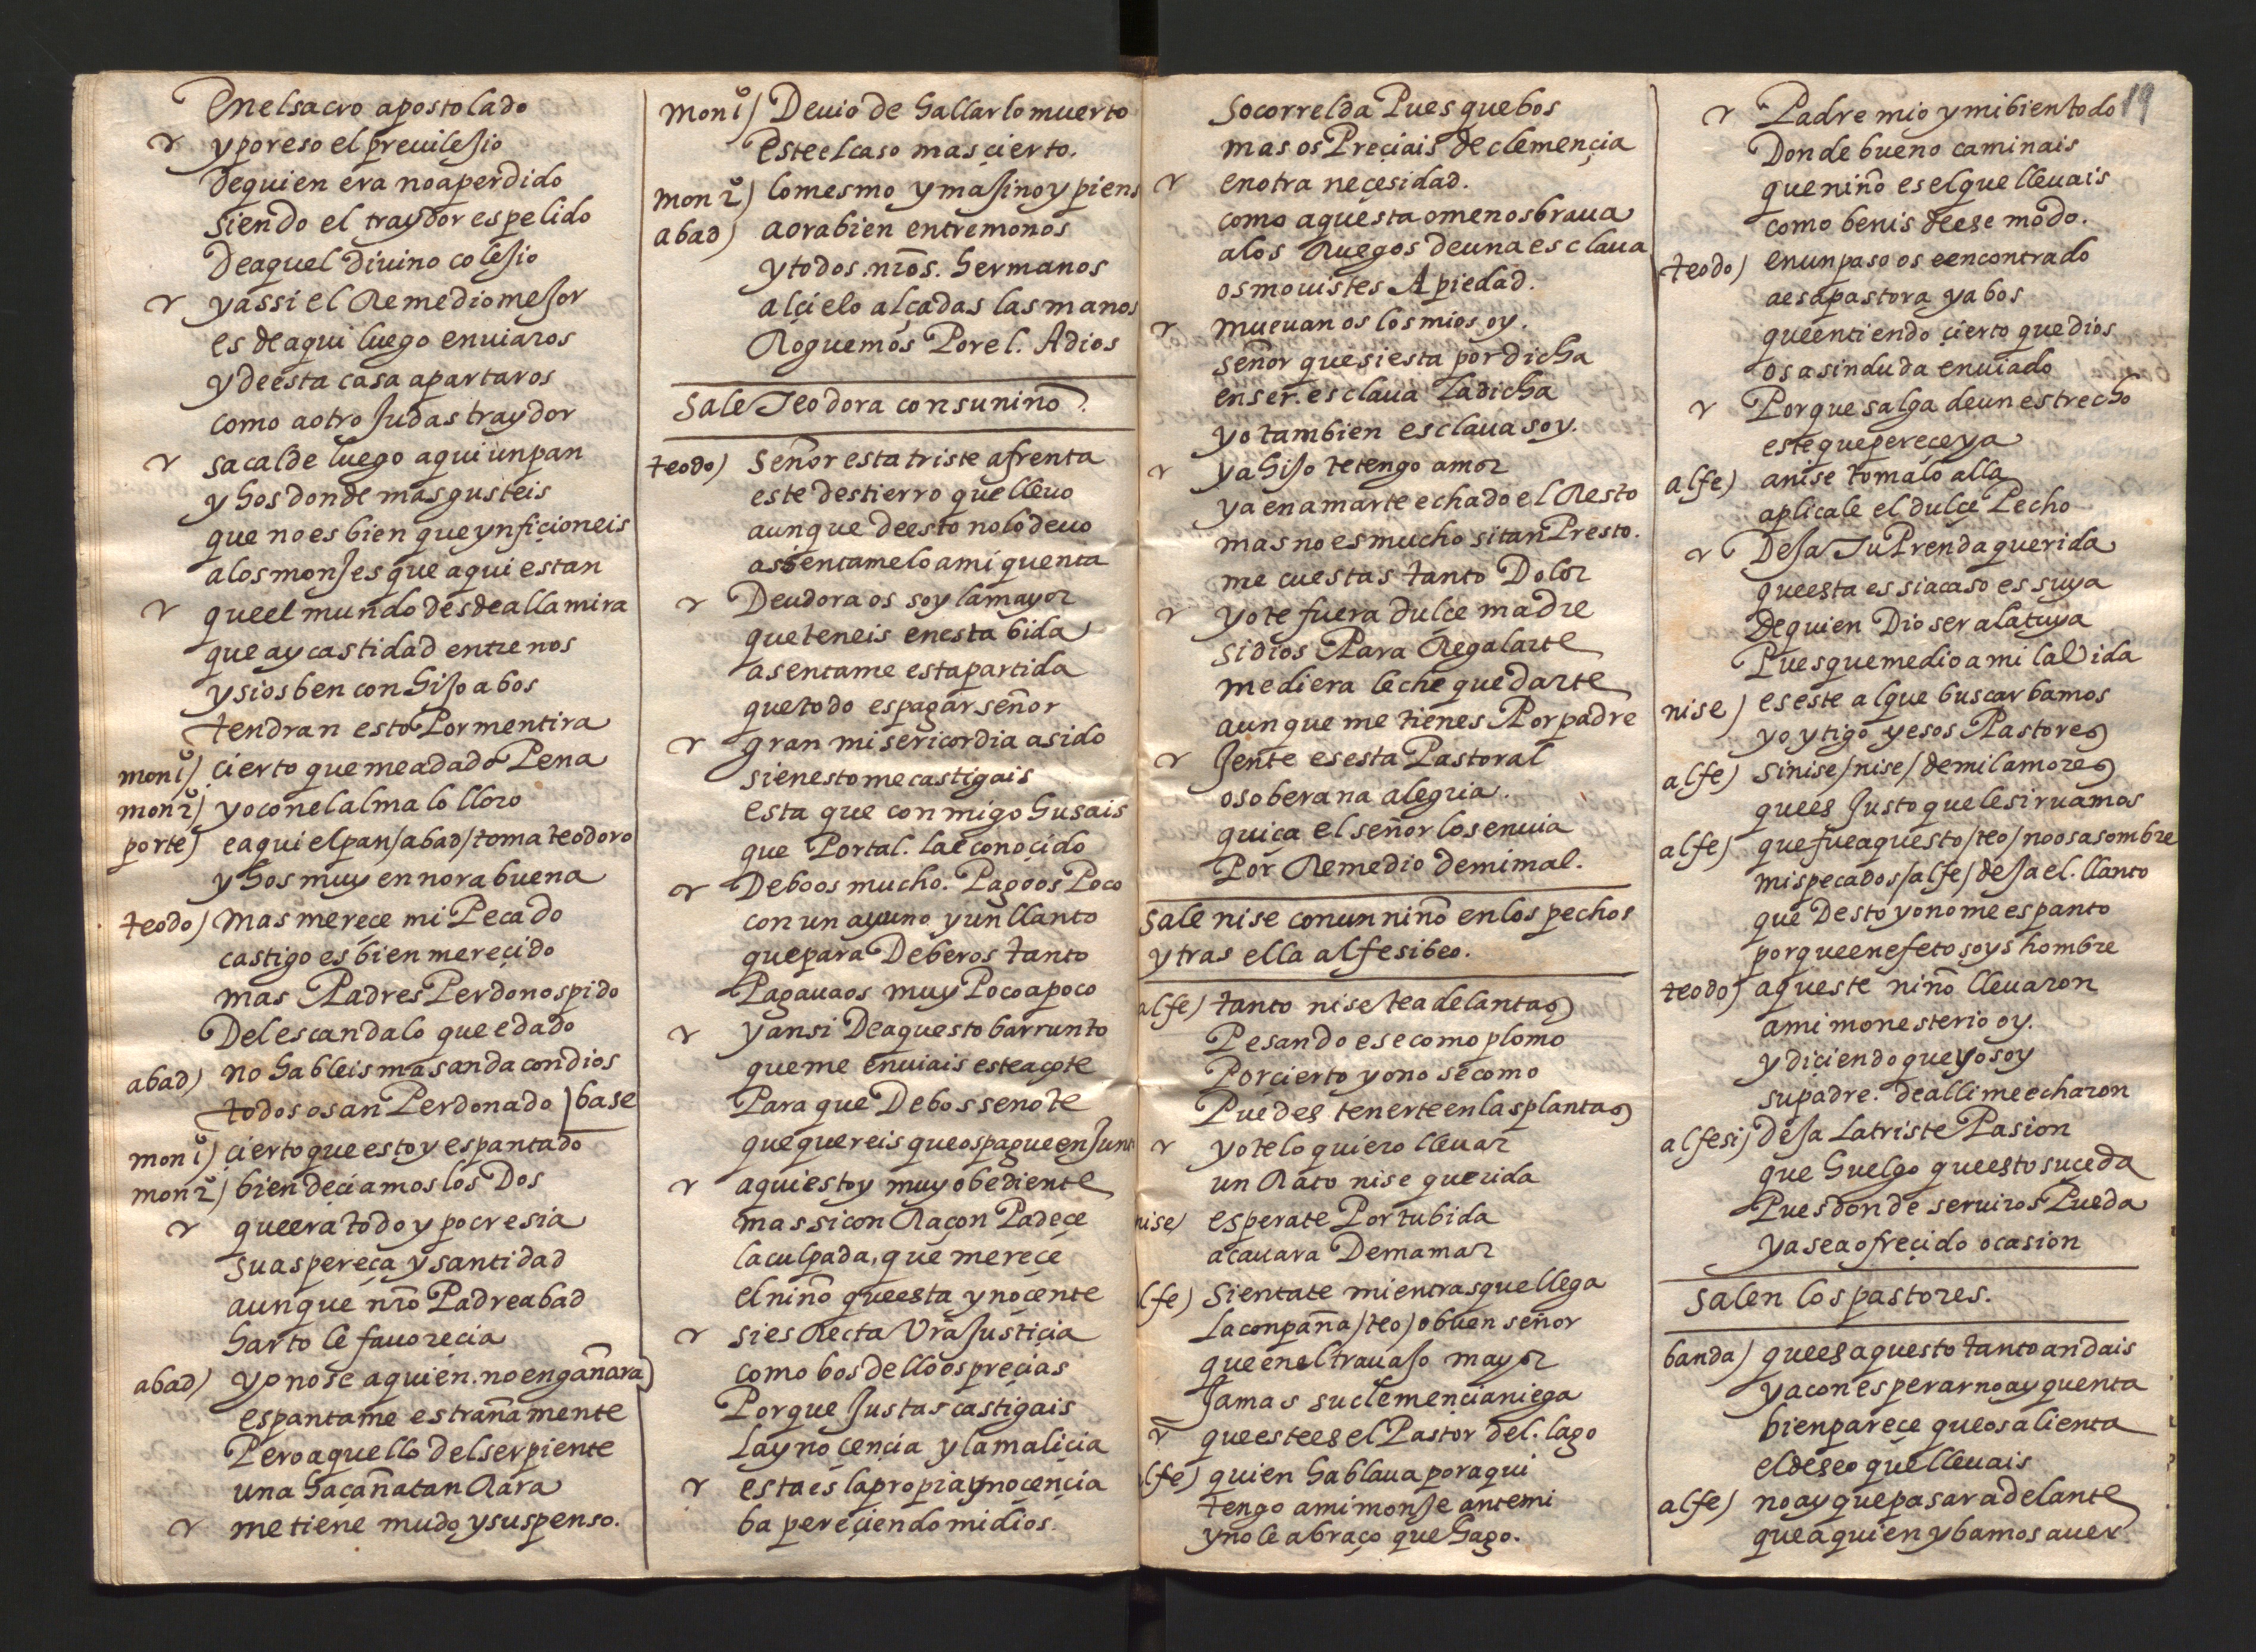 En el sacro apostolado
r y por eso el preuilejio
de quien era no a perdido
siendo el traydor espelido
de aquel diuino colejio
r y assi el Remedio mejor
es de aqui luego enuiaros
y de esta casa apartaros
como a otro judas traydor
r sacalde luego aqui un pan
y hos donde mas gusteis
que no es bien que ynfiçioneis
a los monjes que aqui estan
r que el mundo desde alla mira
que ay castidad entre nos
y si os ben con hijo a bos
tendran esto Por mentira
mon1º) çierto que me a dado Pena
mon2º) yo con el alma lo lloro
porte) e aqui el pan / abad / toma teodoro
y hos muy en nora buena
teodo) mas mereçe mi Pecado
castigo es bien mereçido
mas Padres Perdon os pido
Del escandalo que e dado
abad) no hableis mas anda con dios
todos os an Perdonado) base
mon1º) çierto que estoy espantado
mon2º) bien deçiamos los Dos
r que era todo ypocresia
su aspereça y santidad
aunque nro Padre abad
harto le favorecia
abad) yo no se a quien no engañara
espantame estrañamente
Pero aquello del serpiente
una haçaña tan Rara
r me tiene mudo y suspenso.
mon1º) Deuio de hallarlo muerto
este el caso mas çierto.
mon2º) lo mesmo ymajino y piens
abad) aora bien entremonos
y todos nros. hermanos
al çielo alçadas las manos
Roguemos Por el. A dios
Sale Teodora con su niño.
teodo) Señor esta triste afrenta
este destierro que lleuo
aunque de esto no lo deuo
asientamelo a mi quenta
r Deudora os soy la mayor
que teneis en esta bida
asentame esta partida
que todo es pagar señor
r gran misericordia a sido
si en esto me castigais
esta que conmigo husais
que Por tal. la e conoçido
r Debo os mucho. Pago os Poco
con un ayuno y un llanto
que para Deberos tanto
Pagaua os muy Poco a poco
r y ansi De aquesto barrunto
que me enuiais este açote
Para que De bos se note
que quereis que os pague en jun
r aqui estoy muy obediente
mas si con Raçon Padeçe
la culpada, que mereçe
el niño que esta ynoçente
r si es Recta Vra justiçia
como bos de llo os preçias
Porque justas castigais
La ynoçençia y la maliçia
r esta es la propia ynoçençia
ba pereçiendo mi dios.
socorrelda Pues que bos
mas os Preçiais de clemençia
r en otra neçesidad.
como aquesta o menos braua
a los Ruegos de una esclaua
os mouistes A piedad.
r mueuan os los mios oy.
señor que si esta por dicha
en ser. esclaua La dicha
yo tambien esclaua soy.
r ya hijo te tengo amor
ya en amarte e echado el Resto
mas no es mucho si tan Presto.
me cuestas tanto Dolor
r yo te fuera dulçe madre
si dios Para Regalarte
me diera leche que darte
aunque me tienes Por padre
r jente es esta Pastoral
o soberana alegria.
quiça el señor los enuia
Por Remedio de mi mal.
Sale nise con un niño en los pechos
y tras ella alfesibeo.
alfe) tanto nise te adelantas
Pesando ese como plomo
Por çierto yo no se como
Puedes tenerte en las plantas
r yo te lo quiero lleuar
un Rato nise querida
nise) esperate Por tu bida
acauara De mamar
lfe) Sientate mientras que llega
La conpaña / teo / o buen señor
que en el trauajo mayor
Jamas su clemençia niega
r que este es el Pastor del. lago
lfe) quien hablaua por aqui
tengo a mi monje ante mi
y no le abraço que hago.
19
r Padre mio y mi bien todo
Donde bueno caminais
que niño es el que lleuais
como benis de ese modo.
teodo) en un paso os e encontrado
a esa pastora y a bos
que entiendo çierto que dios
os a sin duda enuiado
r Porque salga de un estrecho
este que pereçe ya
alfe) a nise tomalo alla
aplicale el dulçe Pecho
r Deja Tu Prenda querida
que esta es si acaso es suya
De quien Dio ser a la tuya
Pues que me dio a mi la Vida
nise) es este al que buscar bamos
yo ytigo y esos Pastores
alfe) si nise / nise / de mil amores
que es justo que le siruamos
alfe) que fue aquesto / teo / no os asombre
mis pecados / alfe / deja el. llanto
que Desto yo no me espanto
porque en efeto soys hombre
teodo) aqueste niño lleuaron
a mi monesterio oy.
y diçiendo que yo soy
su padre. de alli me echaron
alfesi) deja La triste Pasion
que huelgo que esto suçeda
Pues donde seruiros Pueda
ya se a ofreçido ocasion
Salen los pastores.
banda) que es aquesto tanto andais
ya con esperar no ay quenta
bien pareçe que os alienta
el deseo que lleuais
alfe) no ay que pasar adelante
que a quien ybamos a uer